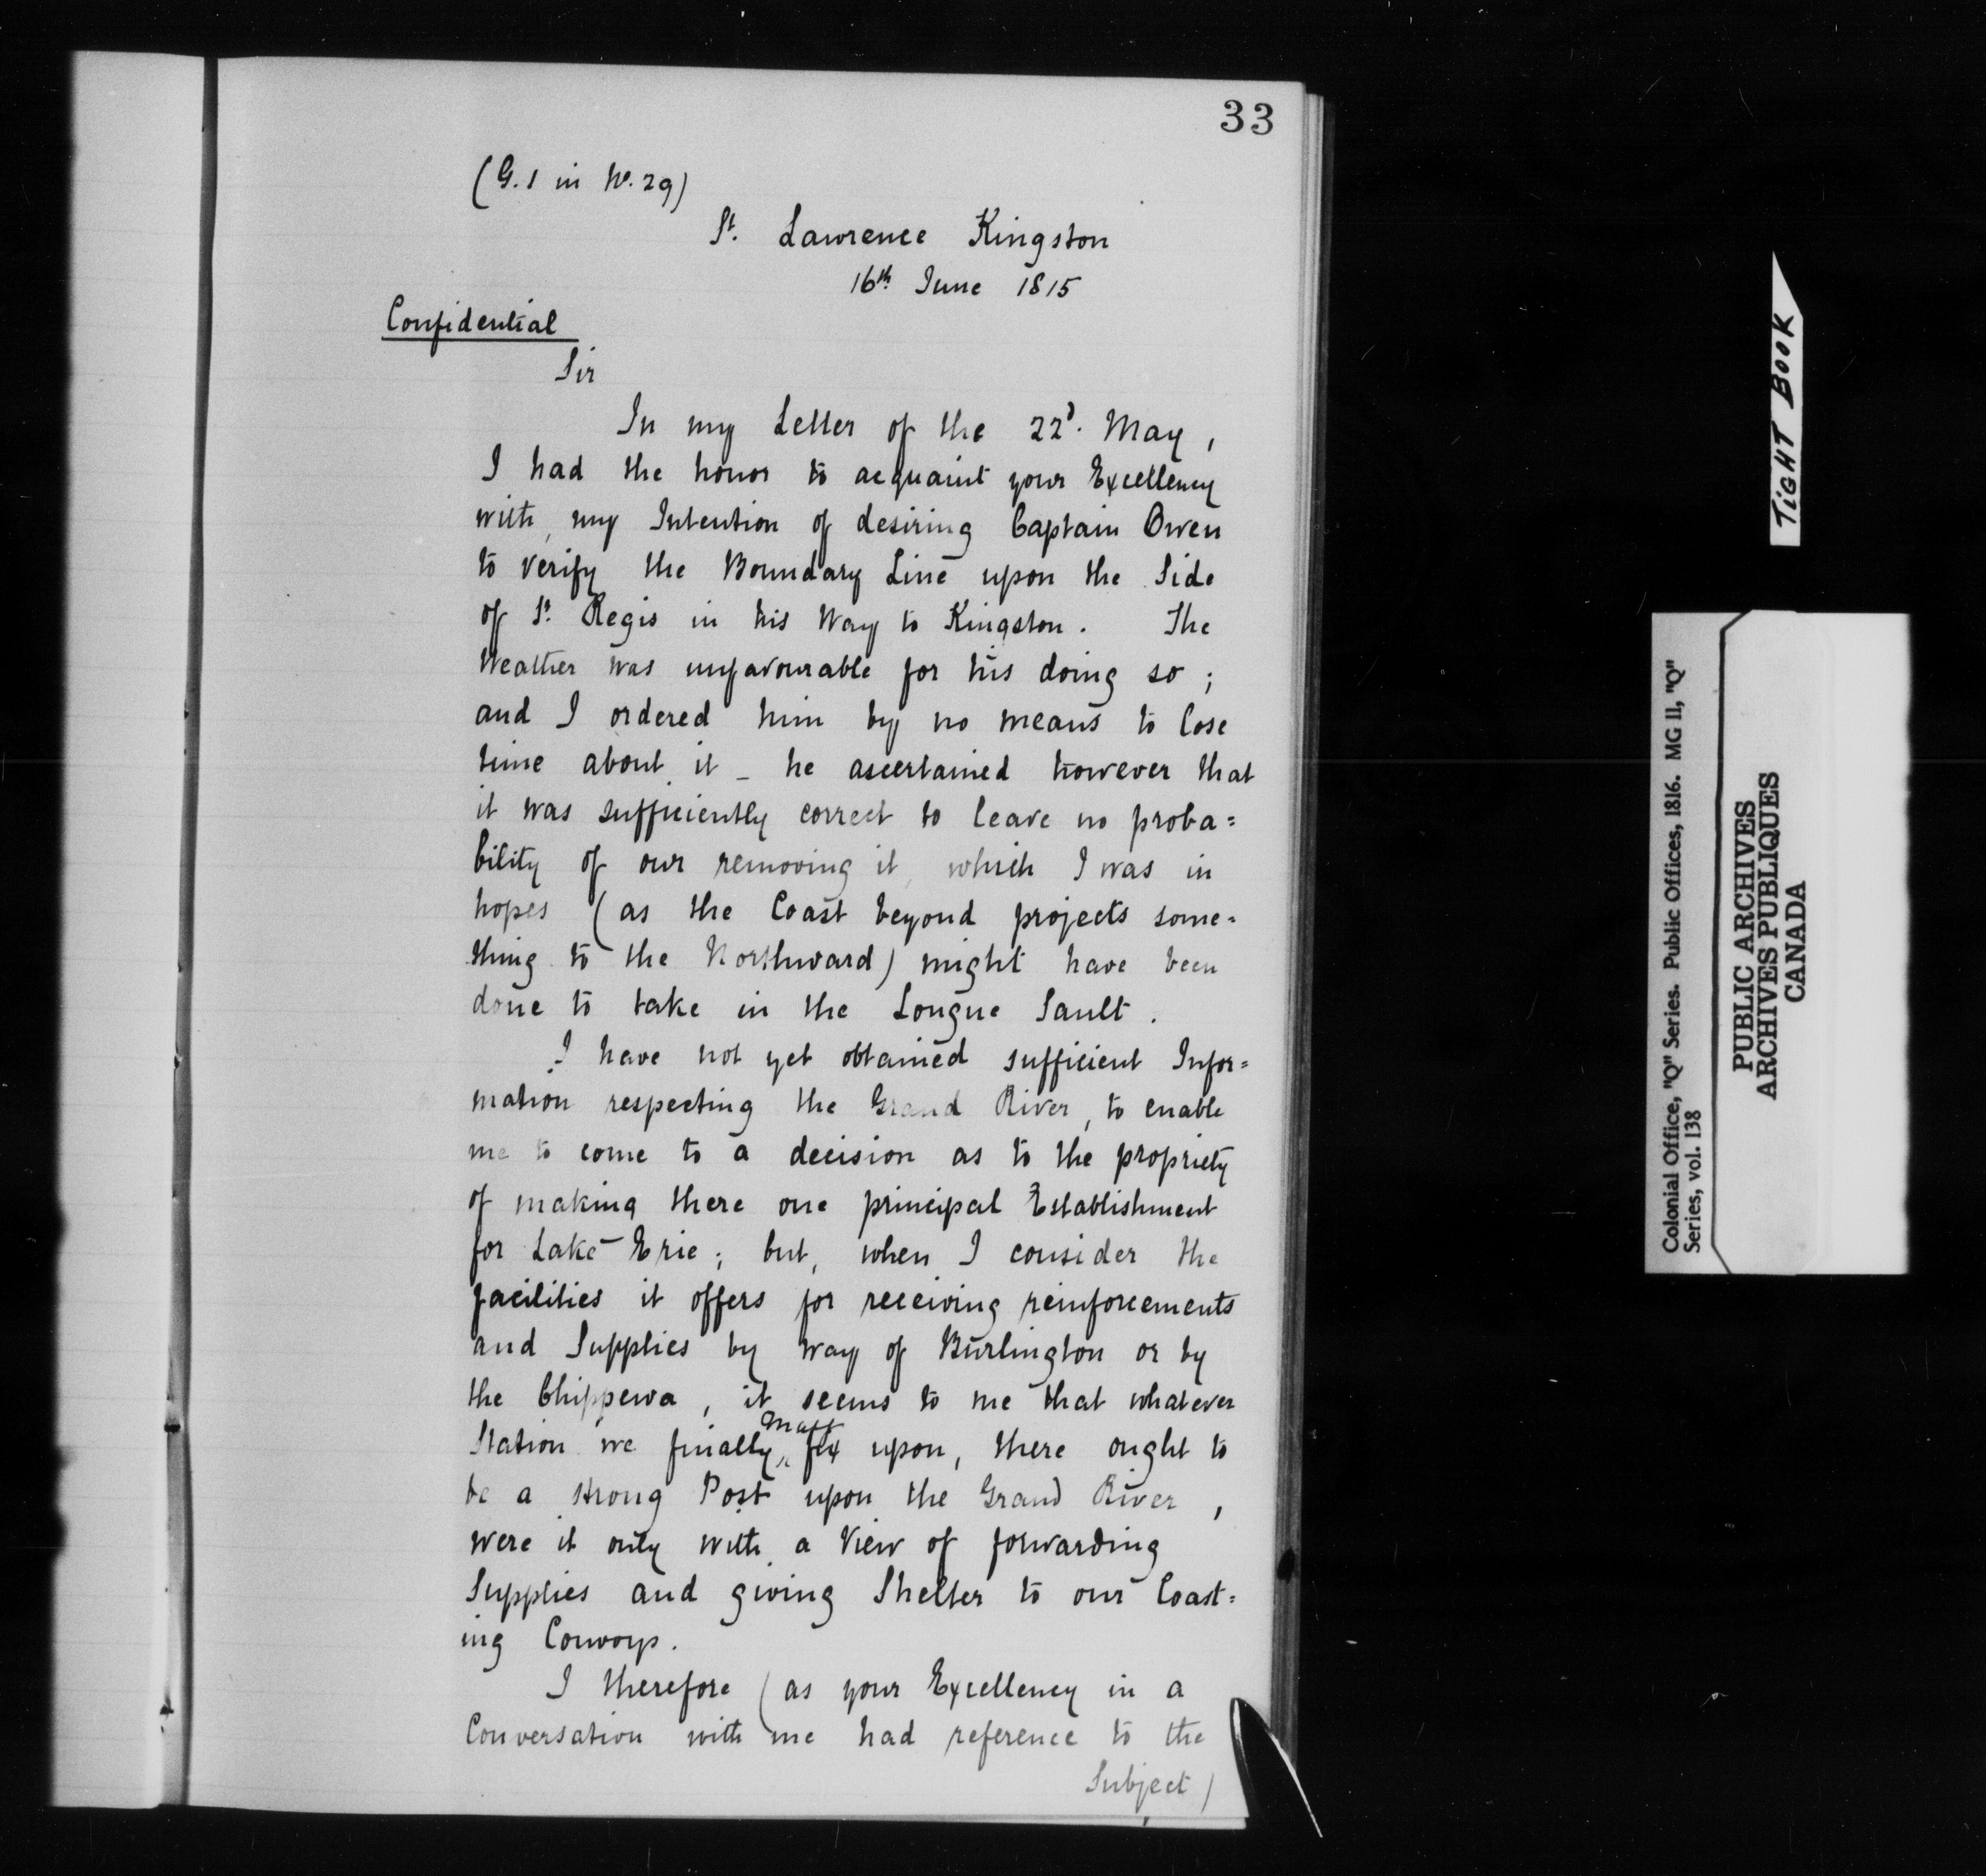 33
(G.1 in No. 29)
St. Lawrence Kingston
16th June 1815
Confidential
Sir
In my Letter of the 22d. May,
I had the honor to acquaint your Excellency
with my Intention of desiring Captain Owen
to verify the Boundary Line upon the Side
of St. Regis in his Way to Kingston. The
Weather was unfavourable for his doing so;
and I ordered him by no means to lose
time about it - he ascertained however that
it was sufficiently correct to leave no proba=
bility of our removing it, which I was in
hopes (as the Coast beyond projects some=
thing to the Northward) might have been
done to take in the Longue Sault.
I have not yet obtained sufficient Infor=
mation respecting the Grand River, to enable
me to come to a decision as to the propriety
of making there one principal Establishment
for Lake Erie; but, when I consider the
facilities it offers for receiving reinforcements
and Supplies by way of Burlington or by
the Chippewa, it seems to me that whatever
Station we finally may fix upon, there ought to
be a strong Post upon the Grand River,
were it only with a View of forwarding
Supplies and giving Shelter to our Coast=
ing Convoys.
I therefore (as your Excellency in a
Conversation with me had reference to the
Subject)
TIGHT BOOK
Colonial Office, "Q" Series. Public Offices, 1816. MG 11, "Q"
Series, vol. 138
PUBLIC ARCHIVES
ARCHIVES PUBLIQUES
CANADA